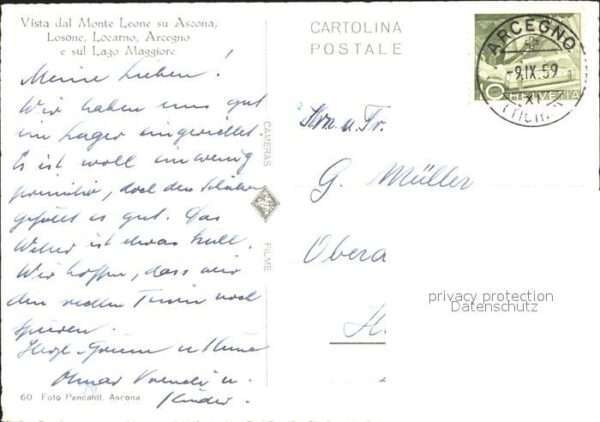 Vista dal Monte Leone su Ascona,
Losone, Locarno, Arcegno
e sul Lago Maggiore
CARTOLINA
POSTALE
ARCEGNO
-9.IX.59
(TICINO)
10 HELVETIA
Meine Lieben!
Wir haben uns gut
im Lager eingerichtet.
Es ist wohl ein wenig
primitiv, doch den Schülern
gefällt es gut. Das
Wetter ist etwas kühl.
Wir hoffen, dass wir
den vollen Tessin noch
spüren.
Herzl. Grüsse u. Küsse
Othmar u.
Kinder.
CAMERAS
FILME
Hrn u. Fr.
G. Müller
Obera
privacy protection
Datenschutz
60 Foto Pancaldi, Ascona